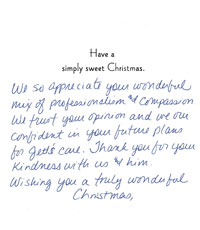 Have a
simply sweet Christmas.
We so appreciate your wonderful
mix of professionalism & compassion
We trust your opinion and we are
confident in your future plans
for Jett's care. Thank you for your
kindness with us & him.
Wishing you a truly wonderful
Christmas,